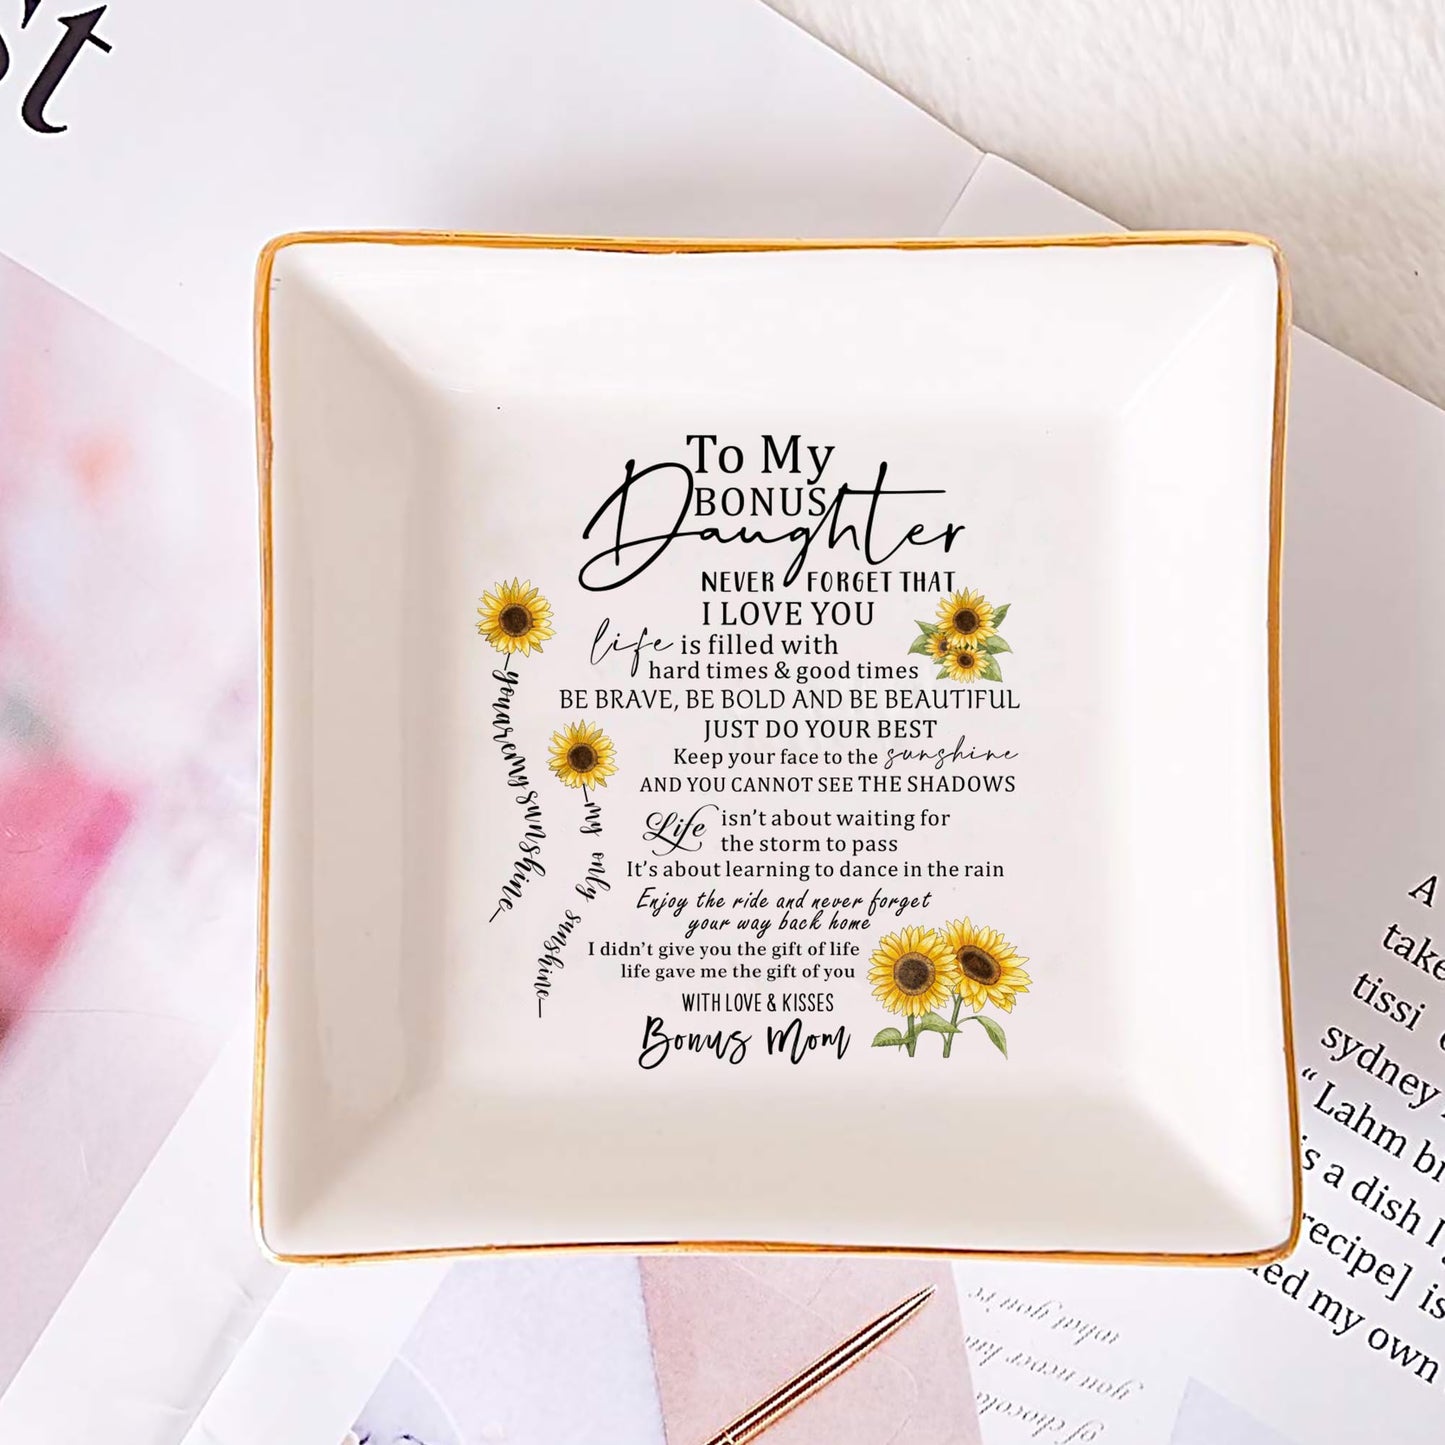 st
To My
BONUS
Daughter
NEVER FORGET THAT
I LOVE YOU
life is filled with
hard times & good times
BE BRAVE, BE BOLD AND BE BEAUTIFUL
JUST DO YOUR BEST
Keep your face to the sunshine
AND YOU CANNOT SEE THE SHADOWS
Life isn't about waiting for
the storm to pass
It's about learning to dance in the rain
Enjoy the ride and never forget
your way back home
I didn't give you the gift of life
life gave me the gift of you
WITH LOVE & KISSES
Bonus Mom
you are my sunshine
my only sunshine
A
take
tissi
sydney
"Lahm br
is a dish I
recipe] is
ded my own
what you're
you never kn
of chocola